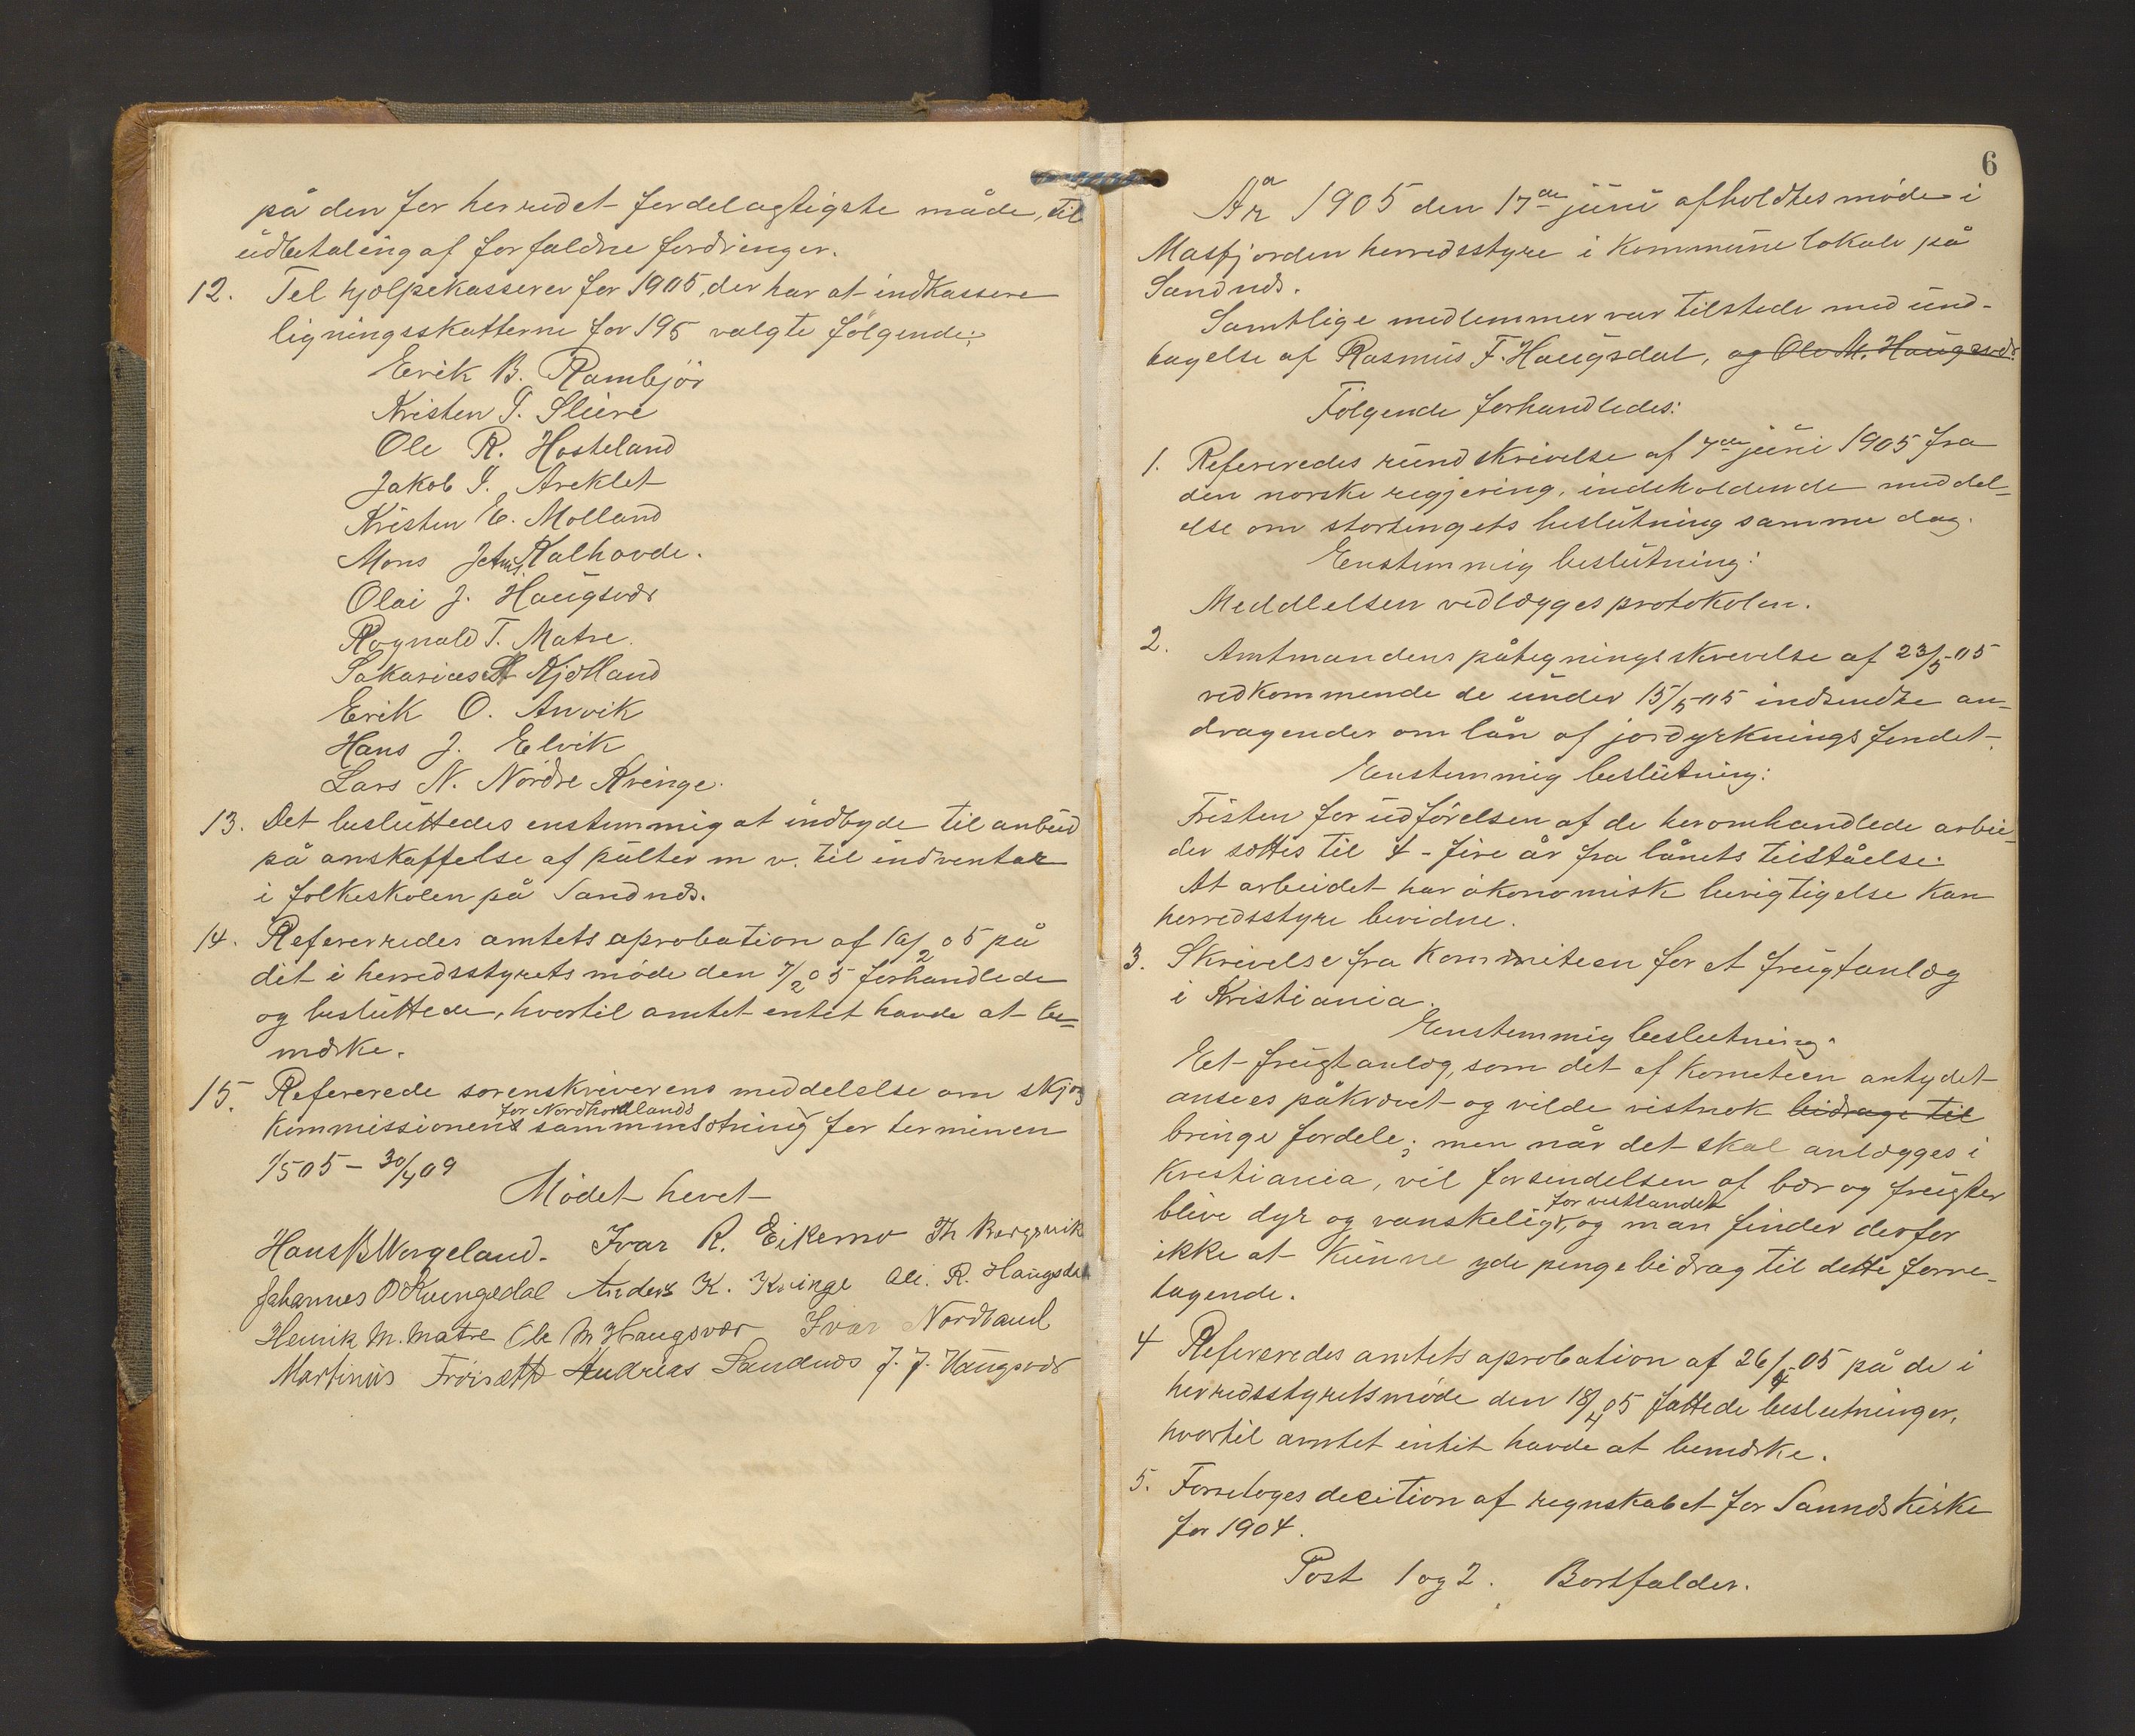 på den for herredet fordelagtigste måde, til
udbetaling af forfaldne fordringer.
12. Til hjælpekasserer for 1905, der har at indkassere
ligningsskatterne for 195 valgte følgende:
Erik B. Rambjør
Kristen T. Sleire
Ole R. Hosteland
Jakob I. Areklet
Kristen E. Molland
Mons Kalhovde.
Olai J. Haugsvær
Rognald T. Matre.
Sakarias Kjetland
Erik O. Anvik
Hans J. Elvik
Lars N. Nordre Kvinge.
13. Det besluttedes enstemmig at indbyde til anbud
på anskaffelse af pulter m v. til indventar
i folkeskolen på Sandnæs.
14. Refererredes amtets aprobation af 16/2 05 på
dit i herredsstyrets møde den 7/2 05 forhandlede
og besluttede, hvortil amtet entet havde at be-
mærke.
15. Refererede sorenskriverens meddelelse om skjøs
for Nordhordlands
kommissionens sammensætning for terminen
1/5 05 - 30/4 09
Mødet hevet
Hans B Wergeland. Ivar R. Eikemo Th Bergsvik
Johannes O Kvingedal Anders K. Kvinge Ole. R. Haugsdal
Henrik M. Matre Ole M Haugsvær Ivar Nordland
Martinus Frøisett Andreas Sandnæs J. J. Haugsvær
6
År 1905 den 17de juni afholdtes møde i
Masfjorden herredsstyre i kommune lokale på
Sandnæs.
Samtlige medlemmer var tilstede med und-
tagelse af Rasmus F. Haugsdal, og Ole M. Haugsvær.
Følgende forhandledes:
1. Refereredes rundskrivelse af 7de juni 1905 fra
den norske regjering, indeholdende meddel-
else om stortingets beslutning samme dag.
Enstemmig beslutning:
Meddlelsen vedlægges protokolen.
2. Amtmandens påtegningsskrevelse af 23/5-05
vedkommende de under 15/5-05 indsendte an-
dragender om lån af jordyrkningsfondet.
Eenstemmig beslutning:
Fristen for udførelsen af de heromhandlede arbei-
der sættes til 4 - fire år fra lånets tilståelse.
At arbeidet har økonomisk berigtigelse kan
herredsstyre bevidne.
3. Skrivelse fra kommiteen for et frugtanlæg
i Kristiania.
Eenstemmig beslutning.
Eet frugtanlæg, som det af kometeen antydet
ansees påkrævet og vilde vistnok bidrage til
bringe fordele; men når det skal anlægges i
Kristiania, vil forsendelsen af bær og frugter
for vestlandet
blive dyr og vanskeligt, og man finder derfor
ikke at kunne yde pengebidrag til dette fore-
tagende.
4 Refereredes amtets aprobation af 26/4-05 på de i
herredsstyretsmøde den 18/4 05 fattede beslutninger,
hvortil amtet intit havde at bemærke.
5. Foretoges decition af regnskabet for Sannæs kirke
for 1904.
Post 1 og 2. Bortfalder.